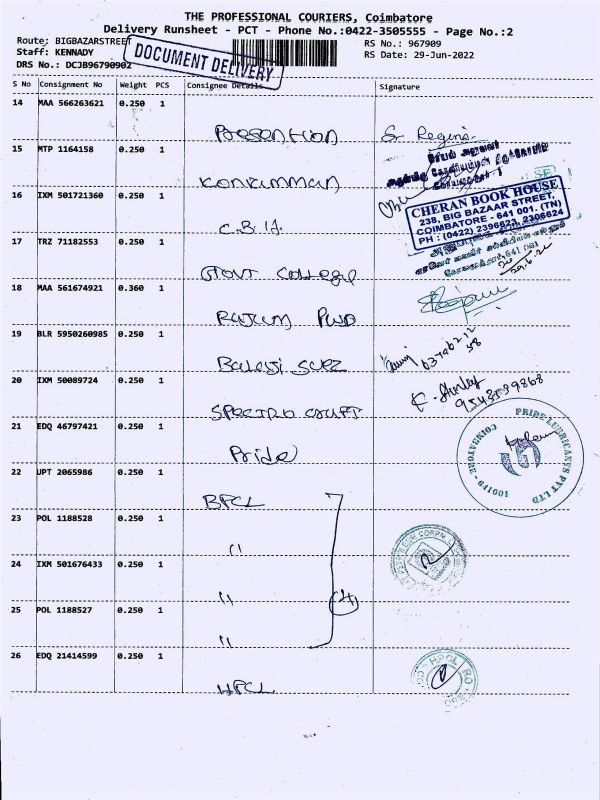 THE PROFESSIONAL COURIERS, Coimbatore
Delivery Runsheet - PCT - Phone No.:0422-3505555 - Page No.:2
Route: BIGBAZARSTREET
RS No.: 967909
Staff: KENNADY
RS Date: 29-Jun-2022
DRS No.: DCJB96790902
DOCUMENT DELIVERY
S No Consignment No Weight PCS Consignee Details Signature
14 MAA 566263621 0.250 1
Presention S. Regina
15 MTP 1164158 0.250 1
Koniamman
16 IXM 501721360 0.250 1
C.B.H.
CHERAN BOOK HOUSE
238, BIG BAZAAR STREET,
COIMBATORE - 641 001. (TN)
PH : (0422) 2396623, 2306624
17 TRZ 71182553 0.250 1
Govt College
29.6.22
18 MAA 561674921 0.360 1
Rajum PWD
19 BLR 5950260985 0.250 1
Balaji
20 IXM 50089724 0.250 1
Spectro
9543539868
21 EDQ 46797421 0.250 1
Pride
PRIDE LUBRICANTS PVT LTD
COIMBATORE - 641001
22 UPT 2065986 0.250 1
BPCL
23 POL 1188528 0.250 1
"
24 IXM 501676433 0.250 1
"
(4)
25 POL 1188527 0.250 1
"
26 EDQ 21414599 0.250 1
HPCL